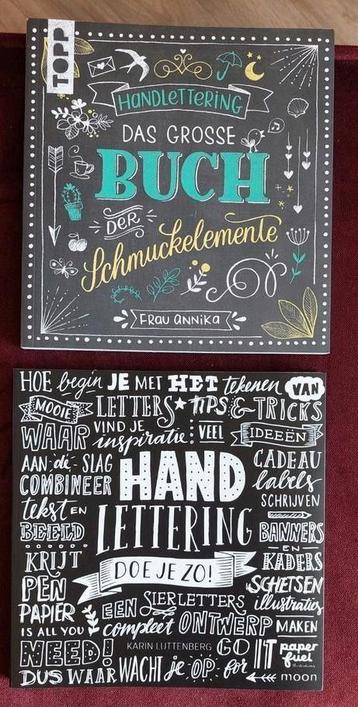 TOPP
HANDLETTERING
DAS GROSSE
BUCH
DER
Schmuckelemente
FRAU ANNIKA
HOE begin JE MET HET tekenen VAN
MOOIE LETTERS TIPS & TRICKS
WAAR VIND JE inspiratie: VEEL IDEEËN
AAN de SLAG HAND CADEAU labels
COMBINEER SCHRIJVEN
tekst EN BEELD LETTERING BANNERS EN KADERS
KRIJT DOE JE ZO! SCHETSEN
PEN PAPIER EEN SIERLETTERS illustraties
IS ALL YOU compleet ONTWERP MAKEN
NEED! KARIN LUTTENBERG GO IT paper fuel
DUS WAAR WACHT je OP for moon